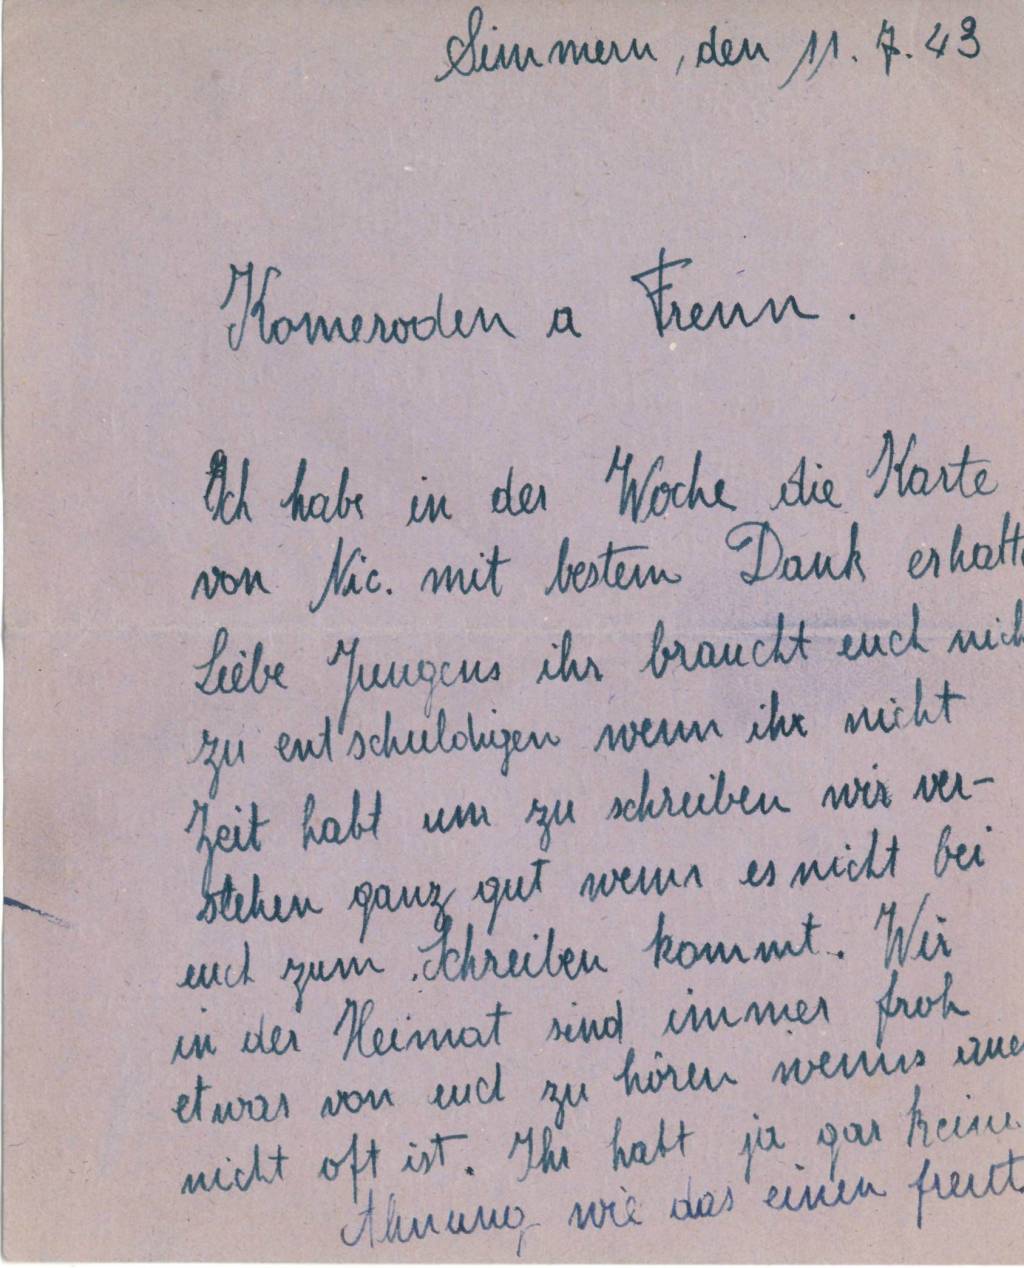 Simmern, den 11. 7. 43
Komeroden a Frenn.
Ich habe in der Woche die Karte
von Nic. mit bestem Dank erhalt
Liebe Jungens ihr braucht euch nich
zu entschuldigen wenn ihr nicht
Zeit habt um zu schreiben wir ver-
stehen ganz gut wenns es nicht bei
euch zum Schreiben kommt. Wir
in der Heimat sind immer froh
etwas von euch zu hören wenns auc
nicht oft ist. Ihr habt ja gar keine
Ahnung wie das einen freut